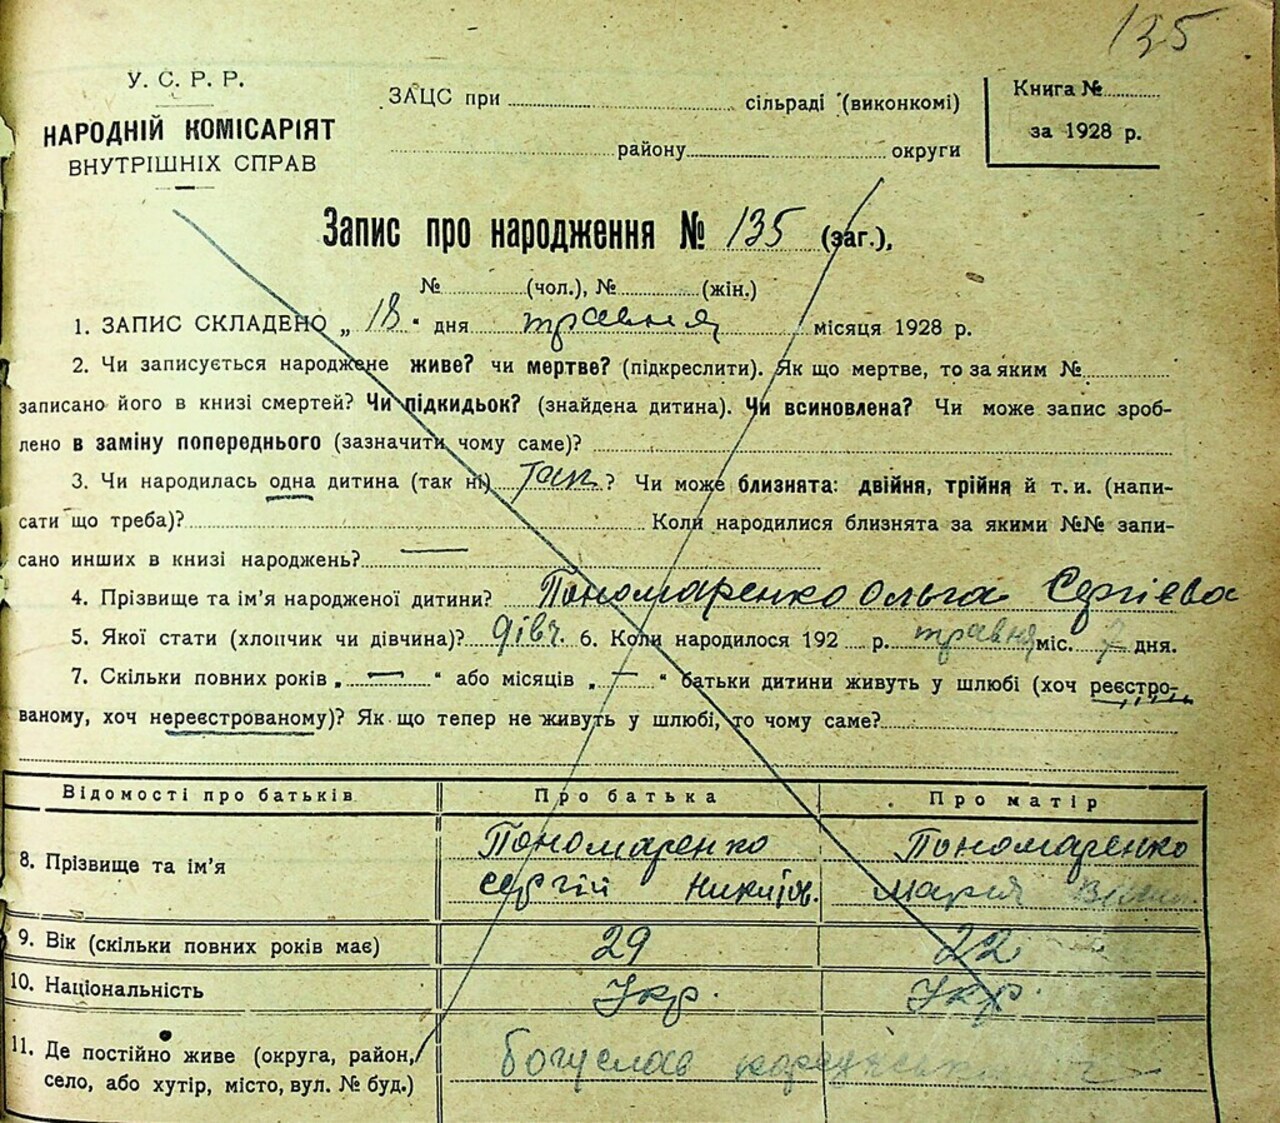 135
У. С. Р. Р.
НАРОДНІЙ КОМІСАРІЯТ
ВНУТРІШНІХ СПРАВ
ЗАЦС при сільраді (виконкомі)
району округи
Книга №
за 1928 р.
Запис про народження № 135 (заг.),
№ (чол.), № (жін.)
1. ЗАПИС СКЛАДЕНО „18“ дня травня місяця 1928 р.
2. Чи записується народжене живе? чи мертве? (підкреслити). Як що мертве, то за яким №
записано його в книзі смертей? Чи підкидьок? (знайдена дитина). Чи всиновлена? Чи може запис зроб-
лено в заміну попереднього (зазначити чому саме)?
3. Чи народилась одна дитина (так ні) так? Чи може близнята: двійня, трійня й т. и. (напи-
сати що треба)? Коли народилися близнята за якими №№ запи-
сано инших в книзі народжень? —
4. Прізвище та ім’я народженої дитини? Пономаренко Ольга Сергієва
5. Якої стати (хлопчик чи дівчина)? дівч. 6. Коли народилося 192 р. травня міс. 7 дня.
7. Скільки повних років „—“ або місяців „—“ батьки дитини живуть у шлюбі (хоч реєстро-
ваному, хоч нереєстрованому)? Як що тепер не живуть у шлюбі, то чому саме?
Відомості про батьків Про батька Про матір
8. Прізвище та ім’я
Пономаренко
Сергій
Пономаренко
Марія
9. Вік (скільки повних років має) 29 22
10. Національність Укр. Укр.
11. Де постійно живе (округа, район,
село, або хутір, місто, вул. № буд.)
Богуслав